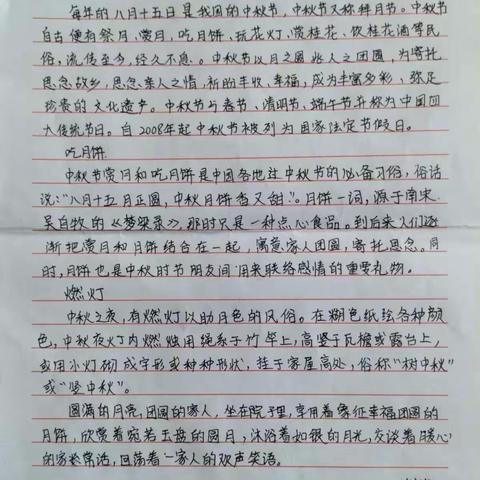 每年的八月十五日是我国的中秋节，中秋节又称拜月节。中秋节
自古便有祭月、赏月、吃月饼、玩花灯、赏桂花、饮桂花酒等民
俗，流传至今，经久不息。中秋节以月之圆兆人之团圆，为寄托
思念故乡，思念亲人之情，祈盼丰收、幸福，成为丰富多彩、弥足
珍贵的文化遗产。中秋节与春节、清明节、端午节并称为中国四
大传统节日。自2008年起中秋节被列为国家法定节假日。
吃月饼
中秋节赏月和吃月饼是中国各地过中秋节的必备习俗，俗话
说：“八月十五月正圆，中秋月饼香又甜”。月饼一词，源于南宋
吴自牧的《梦梁录》，那时只是一种点心食品。到后来人们逐
渐把赏月和月饼结合在一起，寓意家人团圆，寄托思念。同
时，月饼也是中秋时节朋友间用来联络感情的重要礼物。
燃灯
中秋之夜，有燃灯以助月色的风俗。在糊色纸绘各种颜
色，中秋夜灯内燃烛用绳系于竹竿上，高竖于瓦檐或露台上，
或用小灯砌成字形或种种形状，挂于家屋高处，俗称“树中秋”
或“竖中秋”。
圆满的月亮，团圆的家人，坐在院子里，享用着象征幸福团圆的
月饼，欣赏着宛若玉盘的圆月，沐浴着如银的月光，交谈着暖心
的家常话，回荡着一家人的欢声笑语。